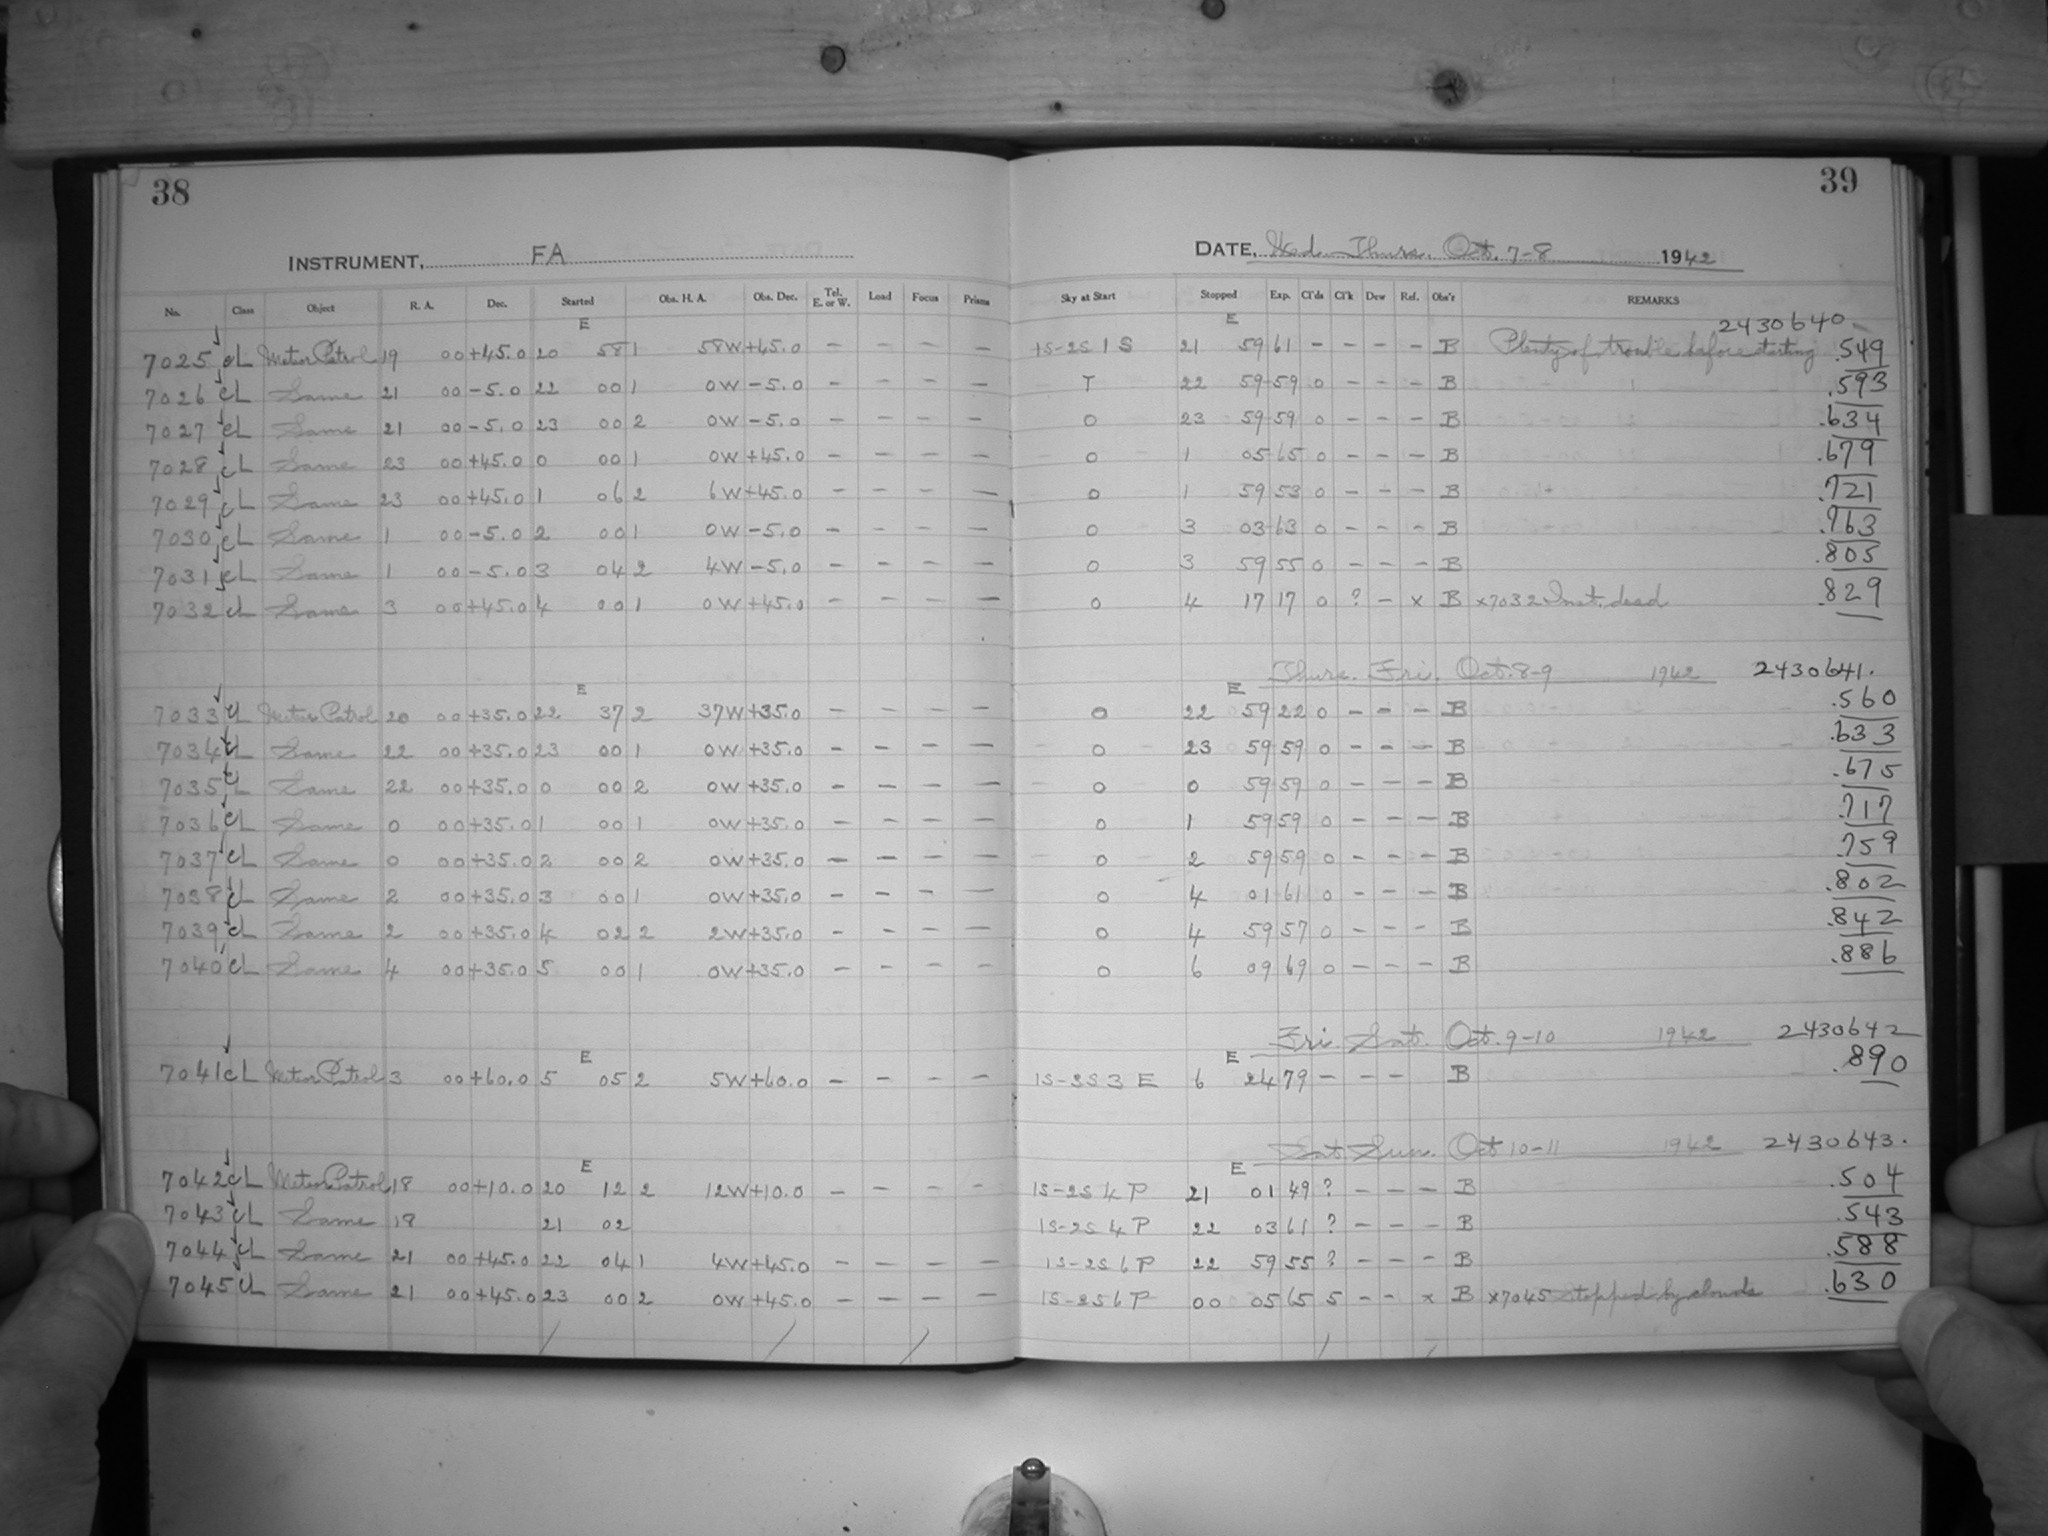 38
39
INSTRUMENT, FA
DATE, Wed. Thurs. Oct. 7-8 1942
No. Class Object R. A. Dec. Started Obs. H. A. Obs. Dec. Tel. E. or W. Load Focus Prisms Sky at Start Stopped Exp. Cl'ds Cl'k Dew Ref. Obs'r REMARKS
E E 2430640.
7025 cL Meteor Patrol 19 00 +45.0 20 58 1 58W +45.0 - - - - 1S-2S 1 S 21 59 61 - - - - B Plenty of trouble before starting .549
7026 cL Same 21 00 -5.0 22 00 1 0W -5.0 - - - - T 22 59 59 0 - - - B .593
7027 cL Same 21 00 -5.0 23 00 2 0W -5.0 - - - - 0 23 59 59 0 - - - B .634
7028 cL Same 23 00 +45.0 0 00 1 0W +45.0 - - - - 0 1 05 65 0 - - - B .679
7029 cL Same 23 00 +45.0 1 06 2 6W +45.0 - - - - 0 1 59 53 0 - - - B .721
7030 cL Same 1 00 -5.0 2 00 1 0W -5.0 - - - - 0 3 03 63 0 - - - B .763
7031 cL Same 1 00 -5.0 3 04 2 4W -5.0 - - - - 0 3 59 55 0 - - - B .805
7032 cL Same 3 00 +45.0 4 00 1 0W +45.0 - - - - 0 4 17 17 0 ? - x B x7032 Inst. dead .829
Thurs. Fri. Oct. 8-9 1942 2430641.
E E
7033 cL Meteor Patrol 20 00 +35.0 22 37 2 37W +35.0 - - - - 0 22 59 22 0 - - - B .560
7034 cL Same 22 00 +35.0 23 00 1 0W +35.0 - - - - 0 23 59 59 0 - - - B .633
7035 cL Same 22 00 +35.0 0 00 2 0W +35.0 - - - - 0 0 59 59 0 - - - B .675
7036 cL Same 0 00 +35.0 1 00 1 0W +35.0 - - - - 0 1 59 59 0 - - - B .717
7037 cL Same 0 00 +35.0 2 00 2 0W +35.0 - - - - 0 2 59 59 0 - - - B .759
7038 cL Same 2 00 +35.0 3 00 1 0W +35.0 - - - - 0 4 01 61 0 - - - B .802
7039 cL Same 2 00 +35.0 4 02 2 2W +35.0 - - - - 0 4 59 57 0 - - - B .842
7040 cL Same 4 00 +35.0 5 00 1 0W +35.0 - - - - 0 6 09 69 0 - - - B .886
Fri. Sat. Oct. 9-10 1942 2430642
E E
7041 cL Meteor Patrol 3 00 +60.0 5 05 2 5W +60.0 - - - - 1S-2S 3 E 6 24 79 - - - B .890
Sat. Sun. Oct 10-11 1942 2430643.
E E
7042 cL Meteor Patrol 18 00 +10.0 20 12 2 12W +10.0 - - - - 1S-2S 4 P 21 01 49 ? - - - B .504
7043 cL Same 18 21 02 1S-2S 4 P 22 03 61 ? - - - B .543
7044 cL Same 21 00 +45.0 22 04 1 4W +45.0 - - - - 1S-2S 6 P 22 59 55 ? - - - B .588
7045 cL Same 21 00 +45.0 23 00 2 0W +45.0 - - - - 1S-2S 6 P 00 05 65 5 - - x B x7045 Stopped by clouds .630